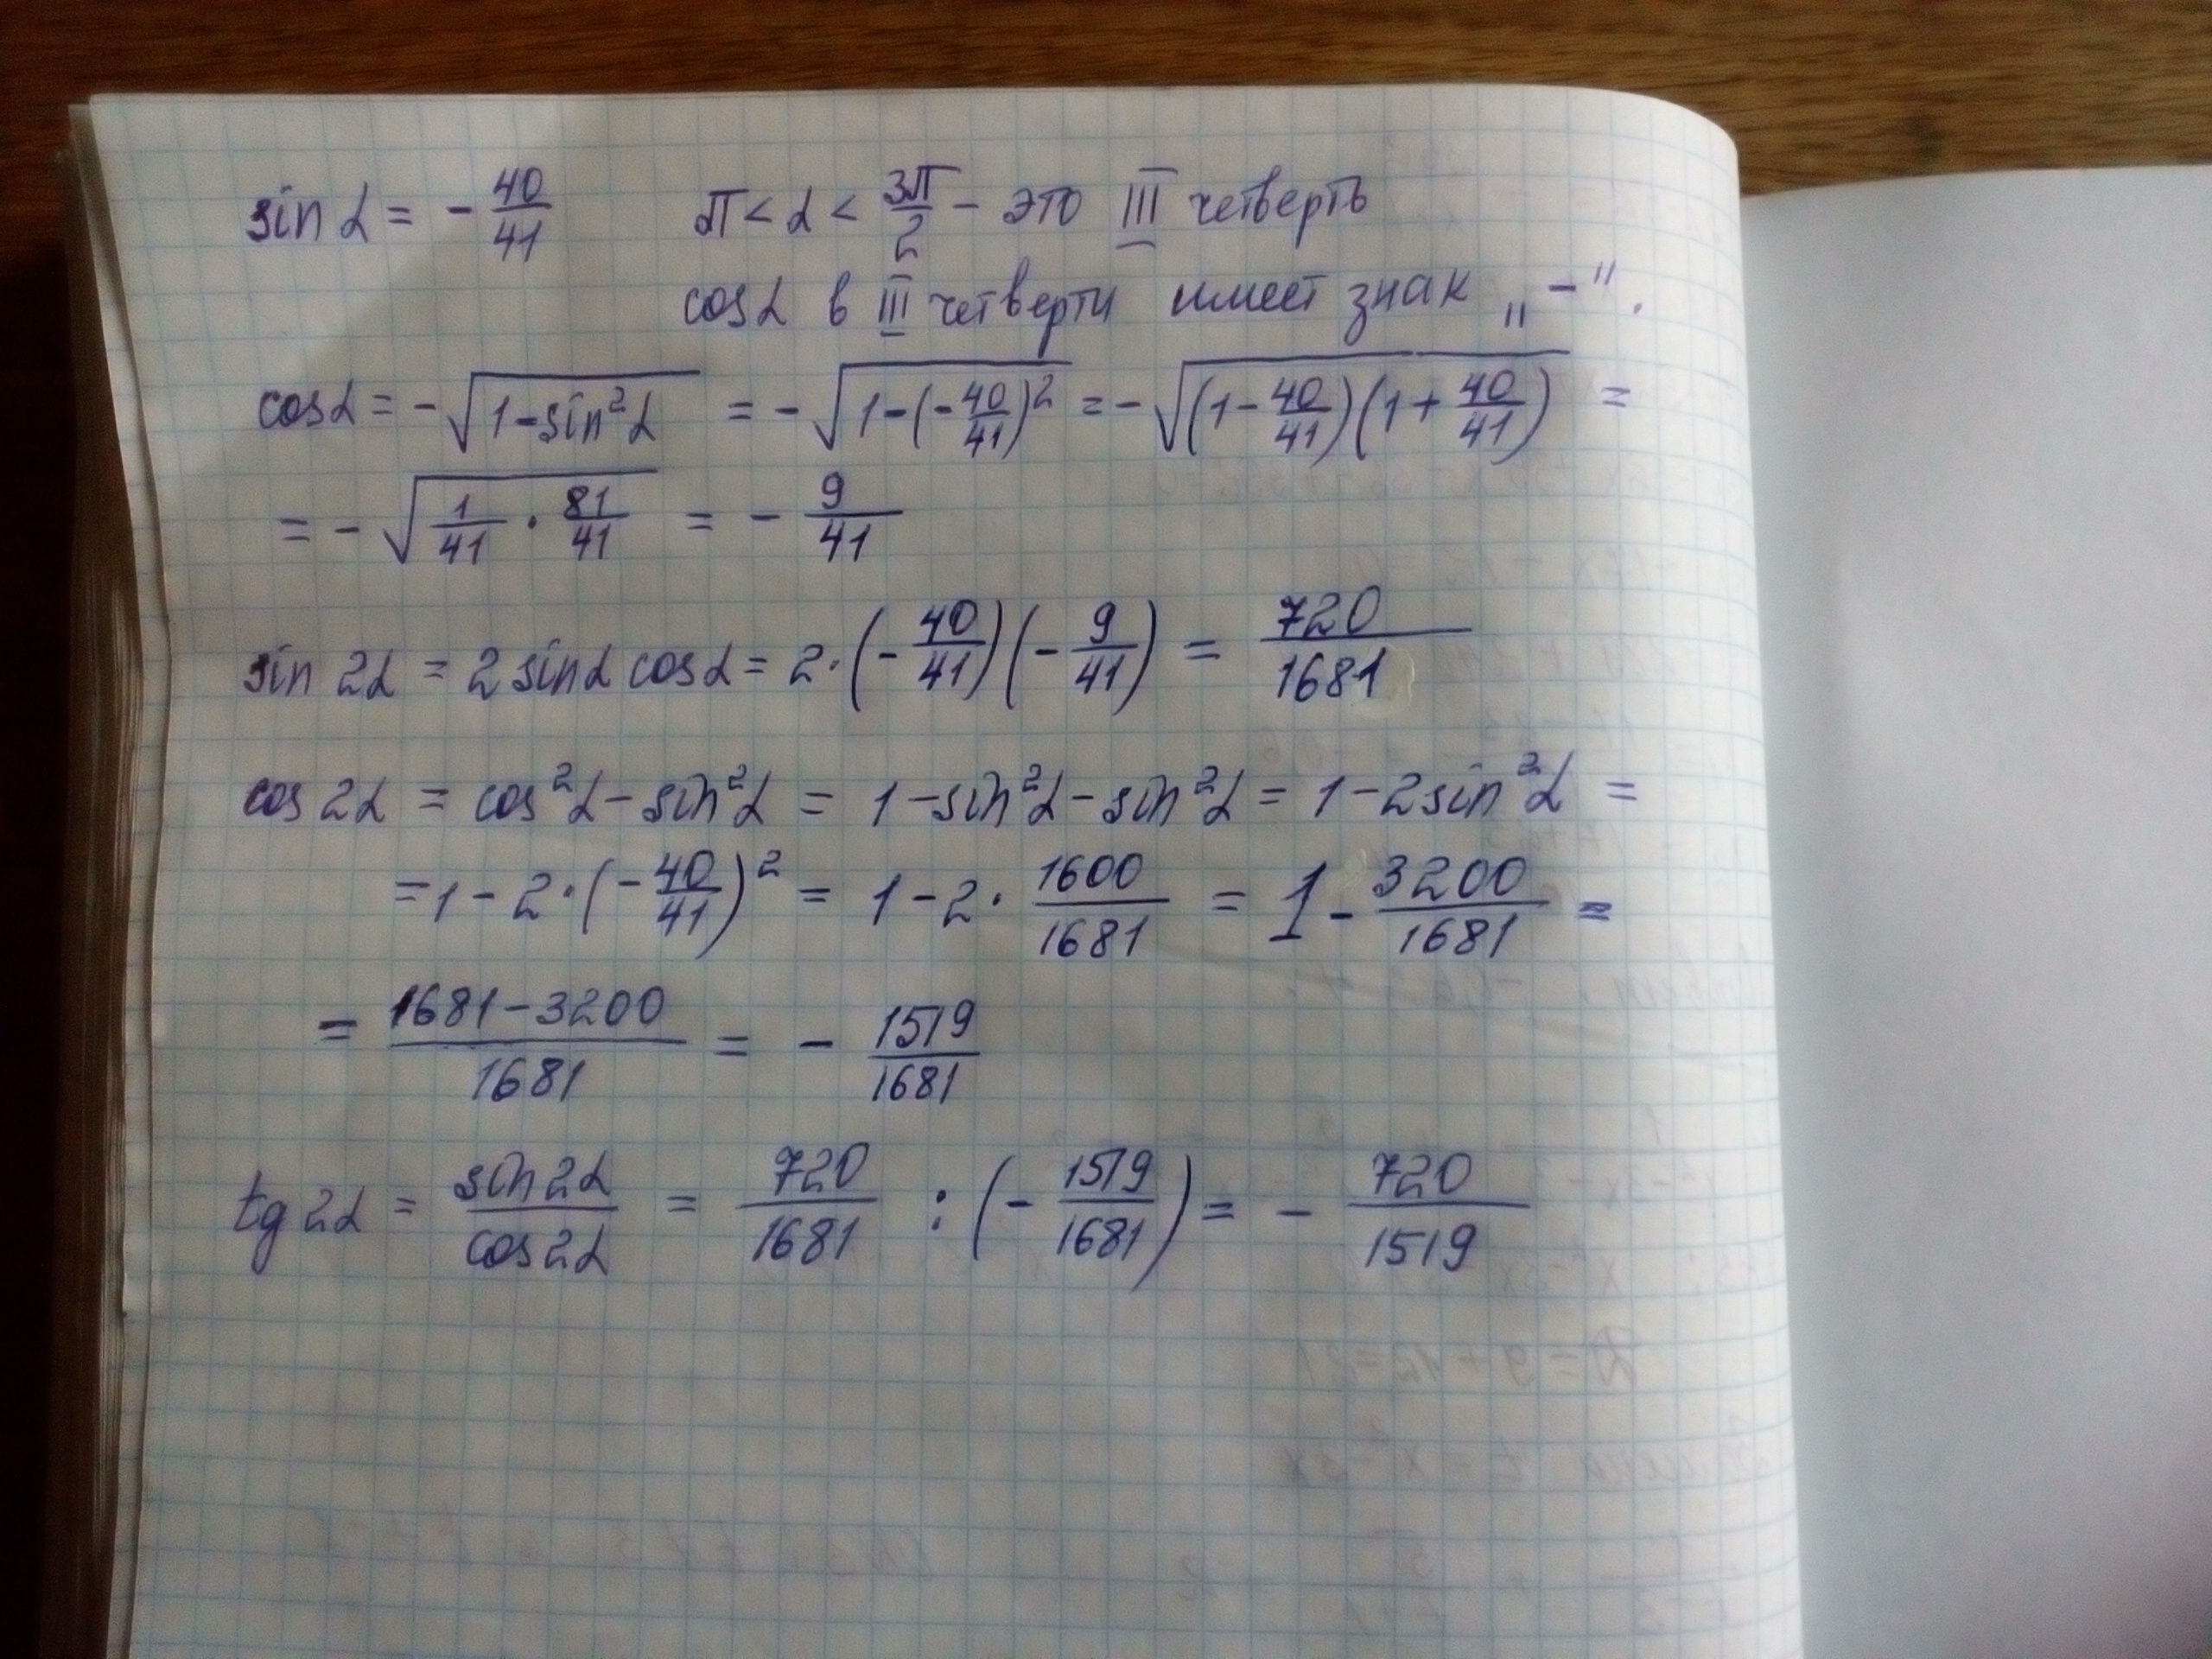 sin α = - 40/41 π < α < 3π/2 - это III четверть
cos α в III четверти имеет знак „-".
cos α = -√(1-sin²α) = -√(1-(-40/41)²) = -√((1-40/41)(1+40/41)) =
= -√(1/41 · 81/41) = - 9/41
sin 2α = 2 sin α cos α = 2·(-40/41)(-9/41) = 720/1681
cos 2α = cos²α - sin²α = 1 - sin²α - sin²α = 1 - 2sin²α =
= 1 - 2·(-40/41)² = 1 - 2· 1600/1681 = 1 - 3200/1681 =
= (1681-3200)/1681 = - 1519/1681
tg 2α = sin 2α/cos 2α = 720/1681 : (- 1519/1681) = - 720/1519